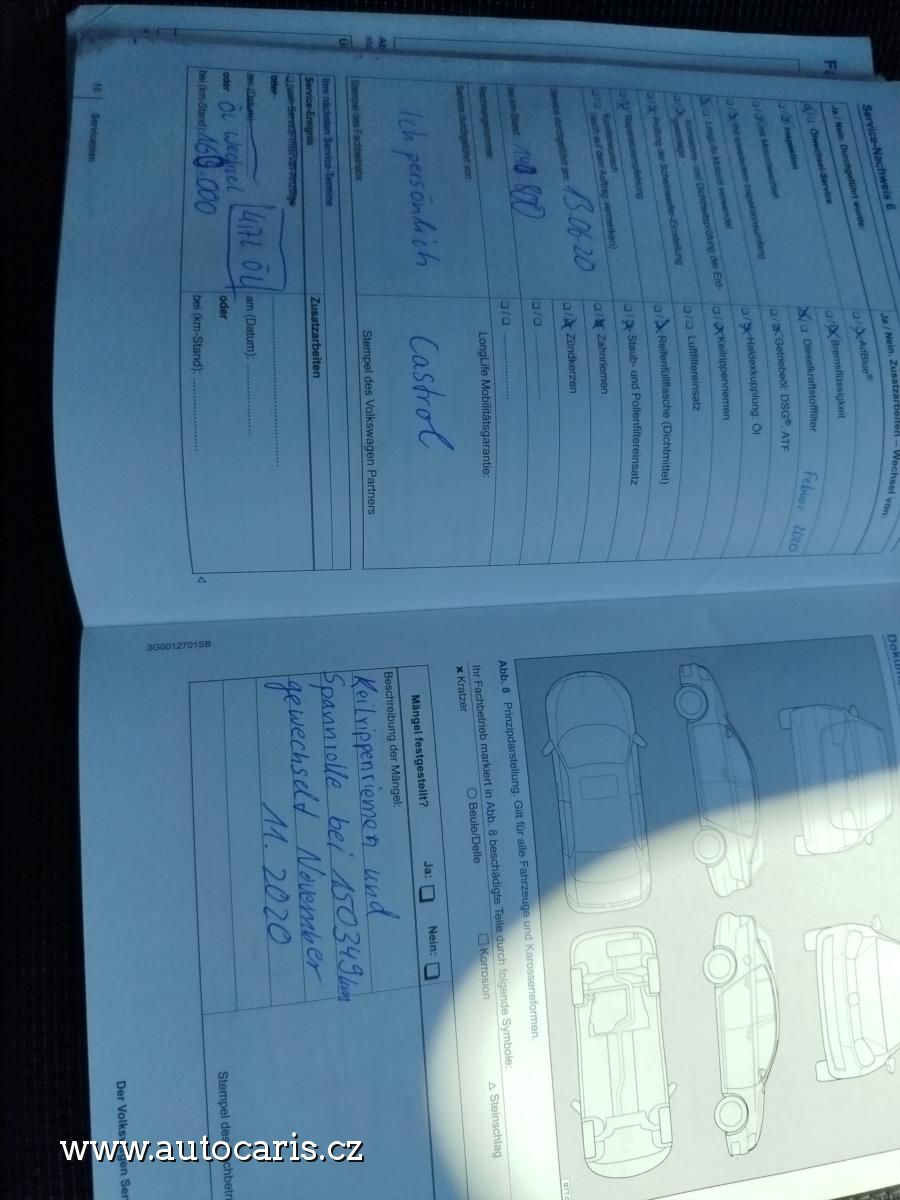 Service-Nachweis 6
Ja / Nein. Durchgeführt wurde:
Ölwechsel-Service
Inspektion
mit Motorölwechsel
mit erweitertem Inspektionsumfang
LongLife Motoröl verwendet
Korrosions- und Dichtheitsprüfung der Erd-
gasanlage
Prüfung der Scheinwerfer-Einstellung
Reparaturempfehlung
Kundenwunsch
(auch auf dem Auftrag vermerken)
Service durchgeführt am: 13.06.20
bei km-Stand:
Rechnungsnummer:
Service durchgeführt von:
Ich persönlich
Stempel des Fachbetriebs
Ja / Nein. Zusatzarbeiten – Wechsel von:
AdBlue®
Bremsflüssigkeit
Dieselkraftstofffilter Februar 2020
Getriebeöl: DSG®, ATF
Haldexkupplung: Öl
Keilrippenriemen
Luftfiltereinsatz
Reifenfüllflasche (Dichtmittel)
Staub- und Pollenfiltereinsatz
Zahnriemen
Zündkerzen
LongLife Mobilitätsgarantie:
Castrol
Stempel des Volkswagen Partners
Ihre nächsten Service-Termine
Service-Ereignis
nach Service-Intervall-Anzeige
oder
am (Datum):
oder Öl Wechsel
bei (km-Stand):
Zusatzarbeiten
am (Datum):
oder
bei (km-Stand):
16 Serviceplan
Abb. 8 Prinzipdarstellung. Gilt für alle Fahrzeuge und Karosserieformen.
Ihr Fachbetrieb markiert in Abb. 8 beschädigte Teile durch folgende Symbole:
× Kratzer
Beule/Delle
Korrosion
Steinschlag
Mängel festgestellt? Ja: Nein:
Beschreibung der Mängel:
Keilrippenriemen und
Spannrolle bei 150349 km
gewechselt November
11. 2020
3G0012701SB
www.autocaris.cz